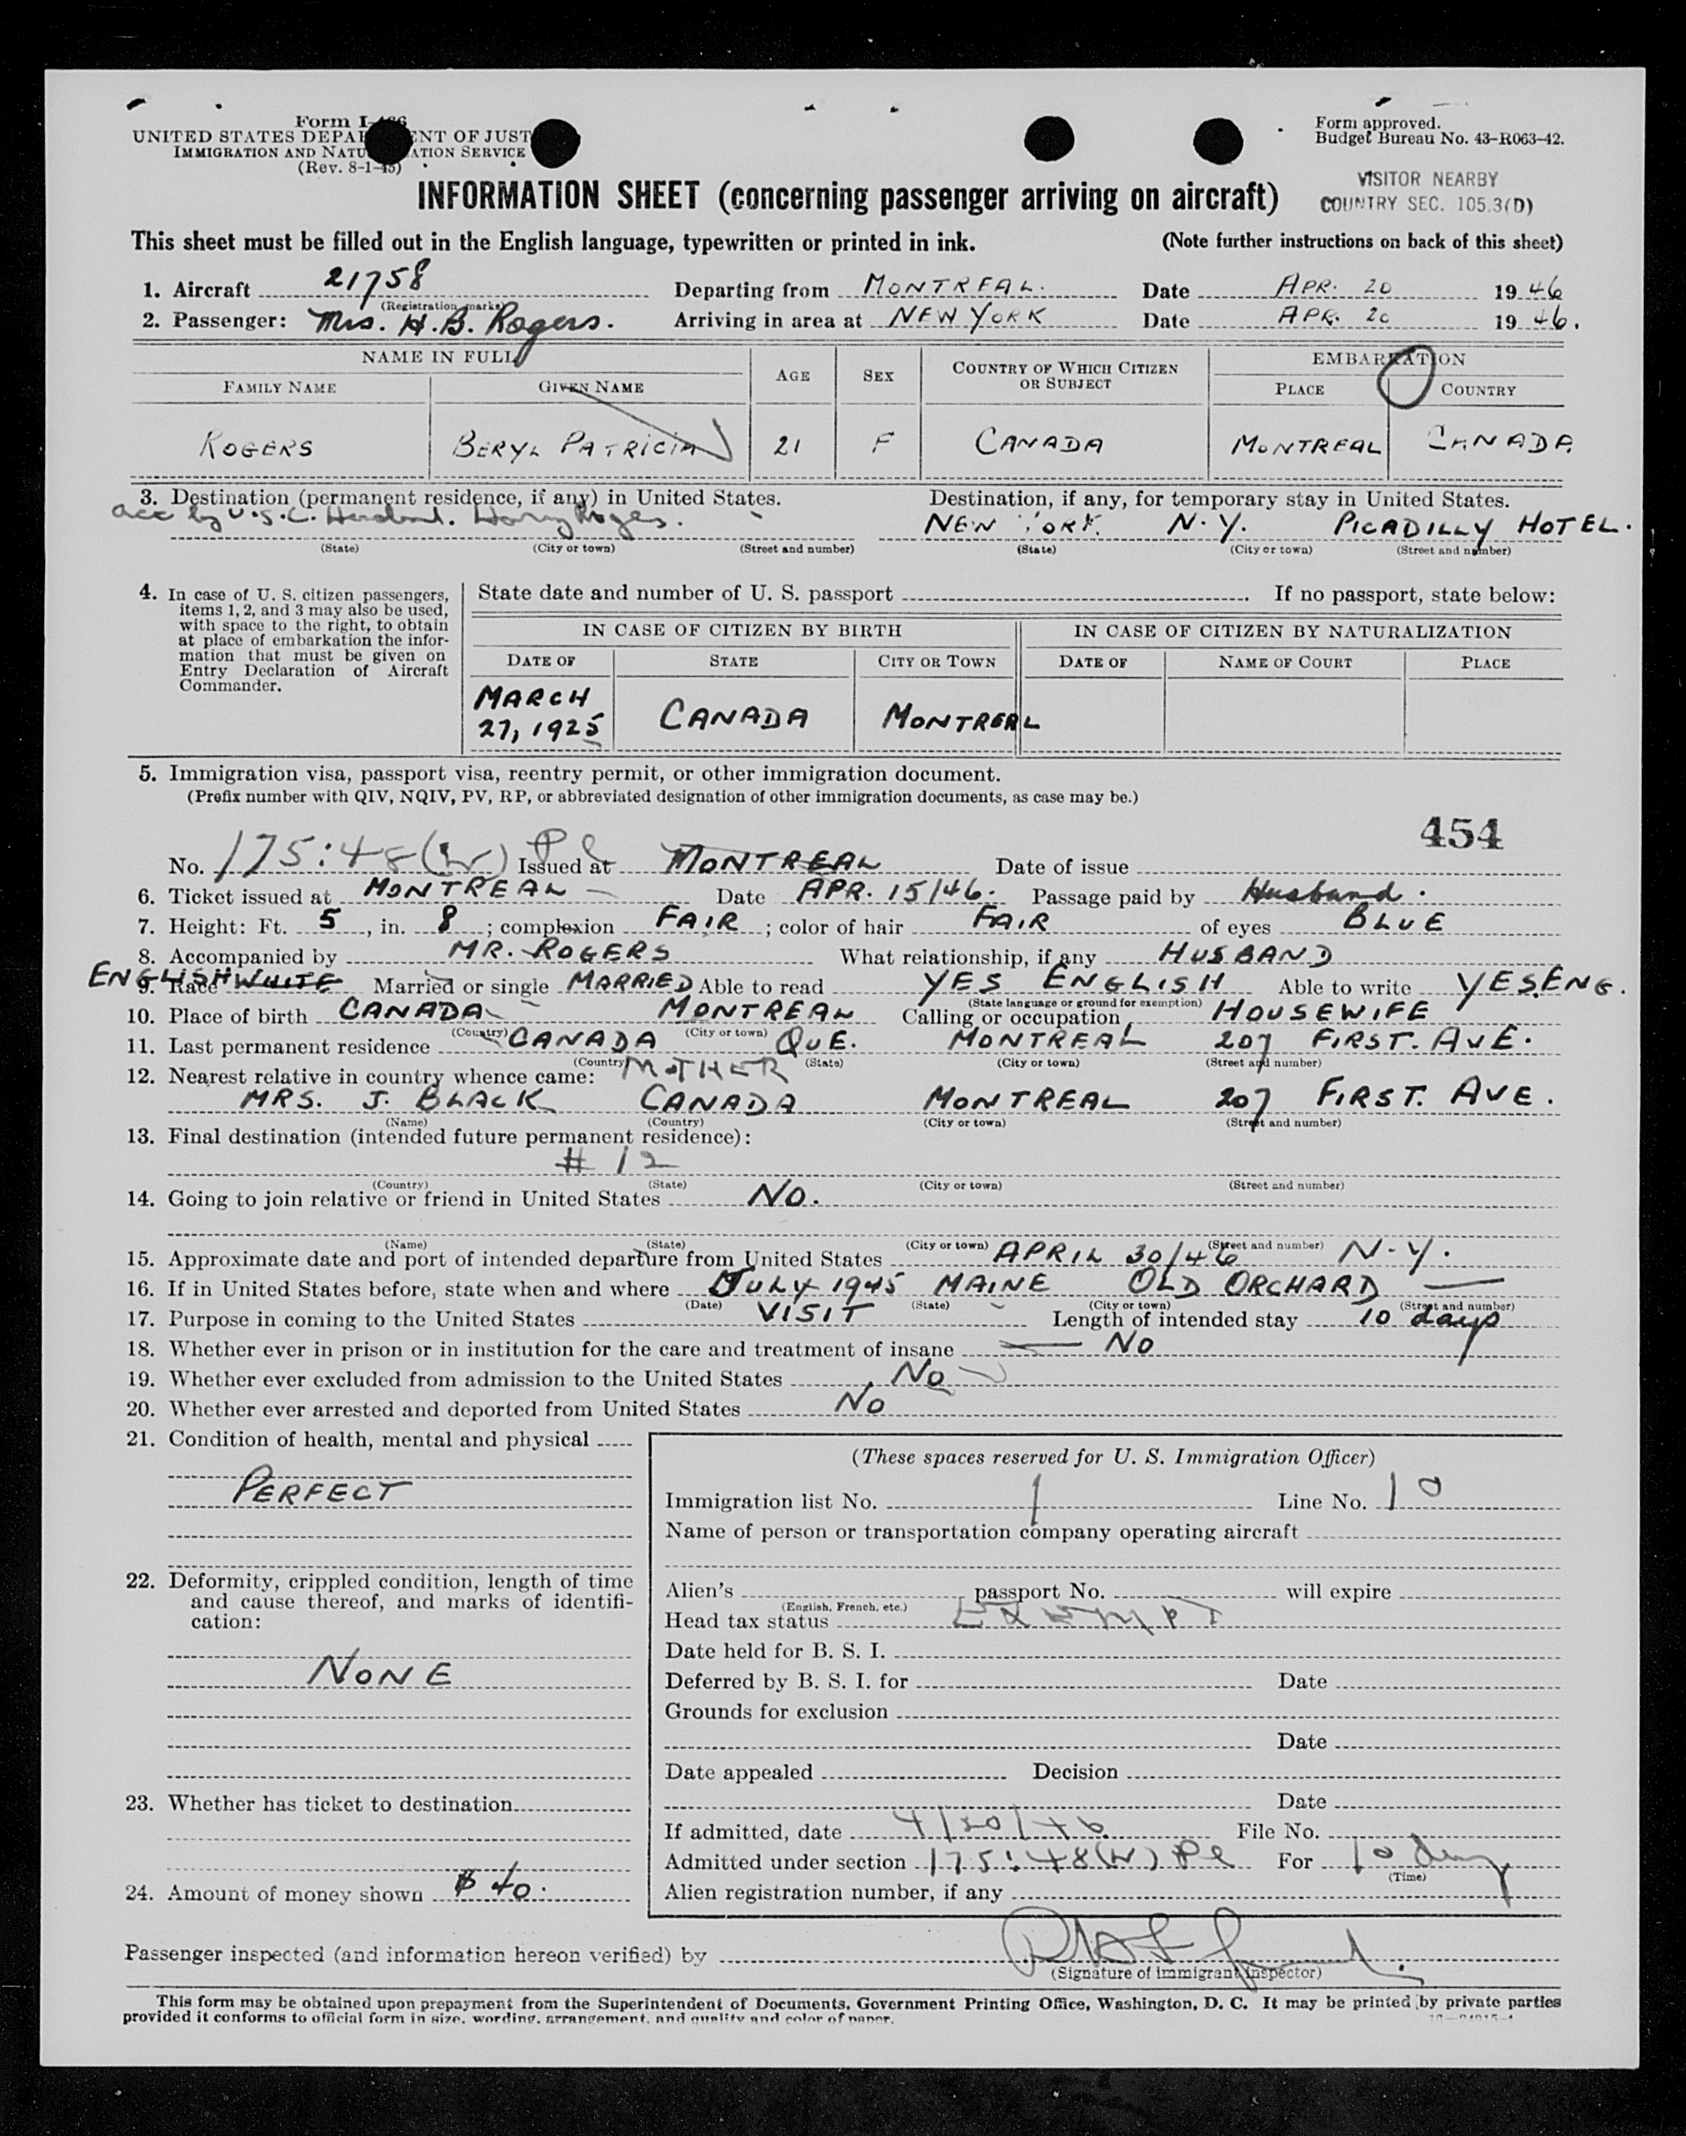 Form I-466
UNITED STATES DEPARTMENT OF JUSTICE
IMMIGRATION AND NATURALIZATION SERVICE
(Rev. 8-1-45)
Form approved.
Budget Bureau No. 43-R063-42.
VISITOR NEARBY
COUNTRY SEC. 105.3(D)
INFORMATION SHEET (concerning passenger arriving on aircraft)
This sheet must be filled out in the English language, typewritten or printed in ink. (Note further instructions on back of this sheet)
1. Aircraft 21758 Departing from MONTREAL. Date APR. 20 1946
(Registration marks)
2. Passenger: Mrs. H. B. Rogers. Arriving in area at NEW YORK Date APR. 20 1946.
NAME IN FULL EMBARKATION
FAMILY NAME GIVEN NAME AGE SEX COUNTRY OF WHICH CITIZEN OR SUBJECT PLACE COUNTRY
ROGERS BERYL PATRICIA 21 F CANADA MONTREAL CANADA
3. Destination (permanent residence, if any) in United States. Destination, if any, for temporary stay in United States.
acc by U.S.C. Husband. Harry Rogers. NEW YORK. N.Y. PICADILLY HOTEL.
(State) (City or town) (Street and number) (State) (City or town) (Street and number)
4. In case of U. S. citizen passengers, items 1, 2, and 3 may also be used, with space to the right, to obtain at place of embarkation the information that must be given on Entry Declaration of Aircraft Commander.
State date and number of U. S. passport If no passport, state below:
IN CASE OF CITIZEN BY BIRTH IN CASE OF CITIZEN BY NATURALIZATION
DATE OF STATE CITY OR TOWN DATE OF NAME OF COURT PLACE
MARCH 27, 1925 CANADA MONTREAL
5. Immigration visa, passport visa, reentry permit, or other immigration document.
(Prefix number with QIV, NQIV, PV, RP, or abbreviated designation of other immigration documents, as case may be.)
454
No. 175:48(W) Pl Issued at MONTREAL Date of issue
6. Ticket issued at MONTREAL Date APR. 15/46. Passage paid by Husband.
7. Height: Ft. 5, in. 8; complexion FAIR; color of hair FAIR of eyes BLUE
8. Accompanied by MR. ROGERS What relationship, if any HUSBAND
9. Race ENGLISH WHITE Married or single MARRIED Able to read YES ENGLISH Able to write YES. ENG.
(State language or ground for exemption)
10. Place of birth CANADA MONTREAL Calling or occupation HOUSEWIFE
(Country) (City or town)
11. Last permanent residence CANADA QUE. MONTREAL 207 FIRST. AVE.
(Country) (State) (City or town) (Street and number)
12. Nearest relative in country whence came: MOTHER
MRS. J. BLACK CANADA MONTREAL 207 FIRST. AVE.
(Name) (Country) (City or town) (Street and number)
13. Final destination (intended future permanent residence):
# 12
(Country) (State) (City or town) (Street and number)
14. Going to join relative or friend in United States NO.
(Name) (State) (City or town) (Street and number)
15. Approximate date and port of intended departure from United States APRIL 30/46 N.Y.
16. If in United States before, state when and where JULY 1945 MAINE OLD ORCHARD
(Date) (State) (City or town) (Street and number)
17. Purpose in coming to the United States VISIT Length of intended stay 10 days
18. Whether ever in prison or in institution for the care and treatment of insane NO
19. Whether ever excluded from admission to the United States NO
20. Whether ever arrested and deported from United States NO
21. Condition of health, mental and physical
PERFECT
22. Deformity, crippled condition, length of time and cause thereof, and marks of identification:
NONE
23. Whether has ticket to destination
24. Amount of money shown $40.
(These spaces reserved for U. S. Immigration Officer)
Immigration list No. 1 Line No. 10
Name of person or transportation company operating aircraft
Alien's passport No. will expire
(English, French, etc.)
Head tax status EXEMPT
Date held for B. S. I.
Deferred by B. S. I. for Date
Grounds for exclusion
Date
Date appealed Decision
Date
If admitted, date 4/20/46 File No.
Admitted under section 175:48(W) Pl For 10 days
(Time)
Alien registration number, if any
Passenger inspected (and information hereon verified) by
(Signature of Immigrant Inspector)
This form may be obtained upon prepayment from the Superintendent of Documents, Government Printing Office, Washington, D. C. It may be printed by private parties
provided it conforms to official form in size, wording, arrangement, and quality and color of paper.